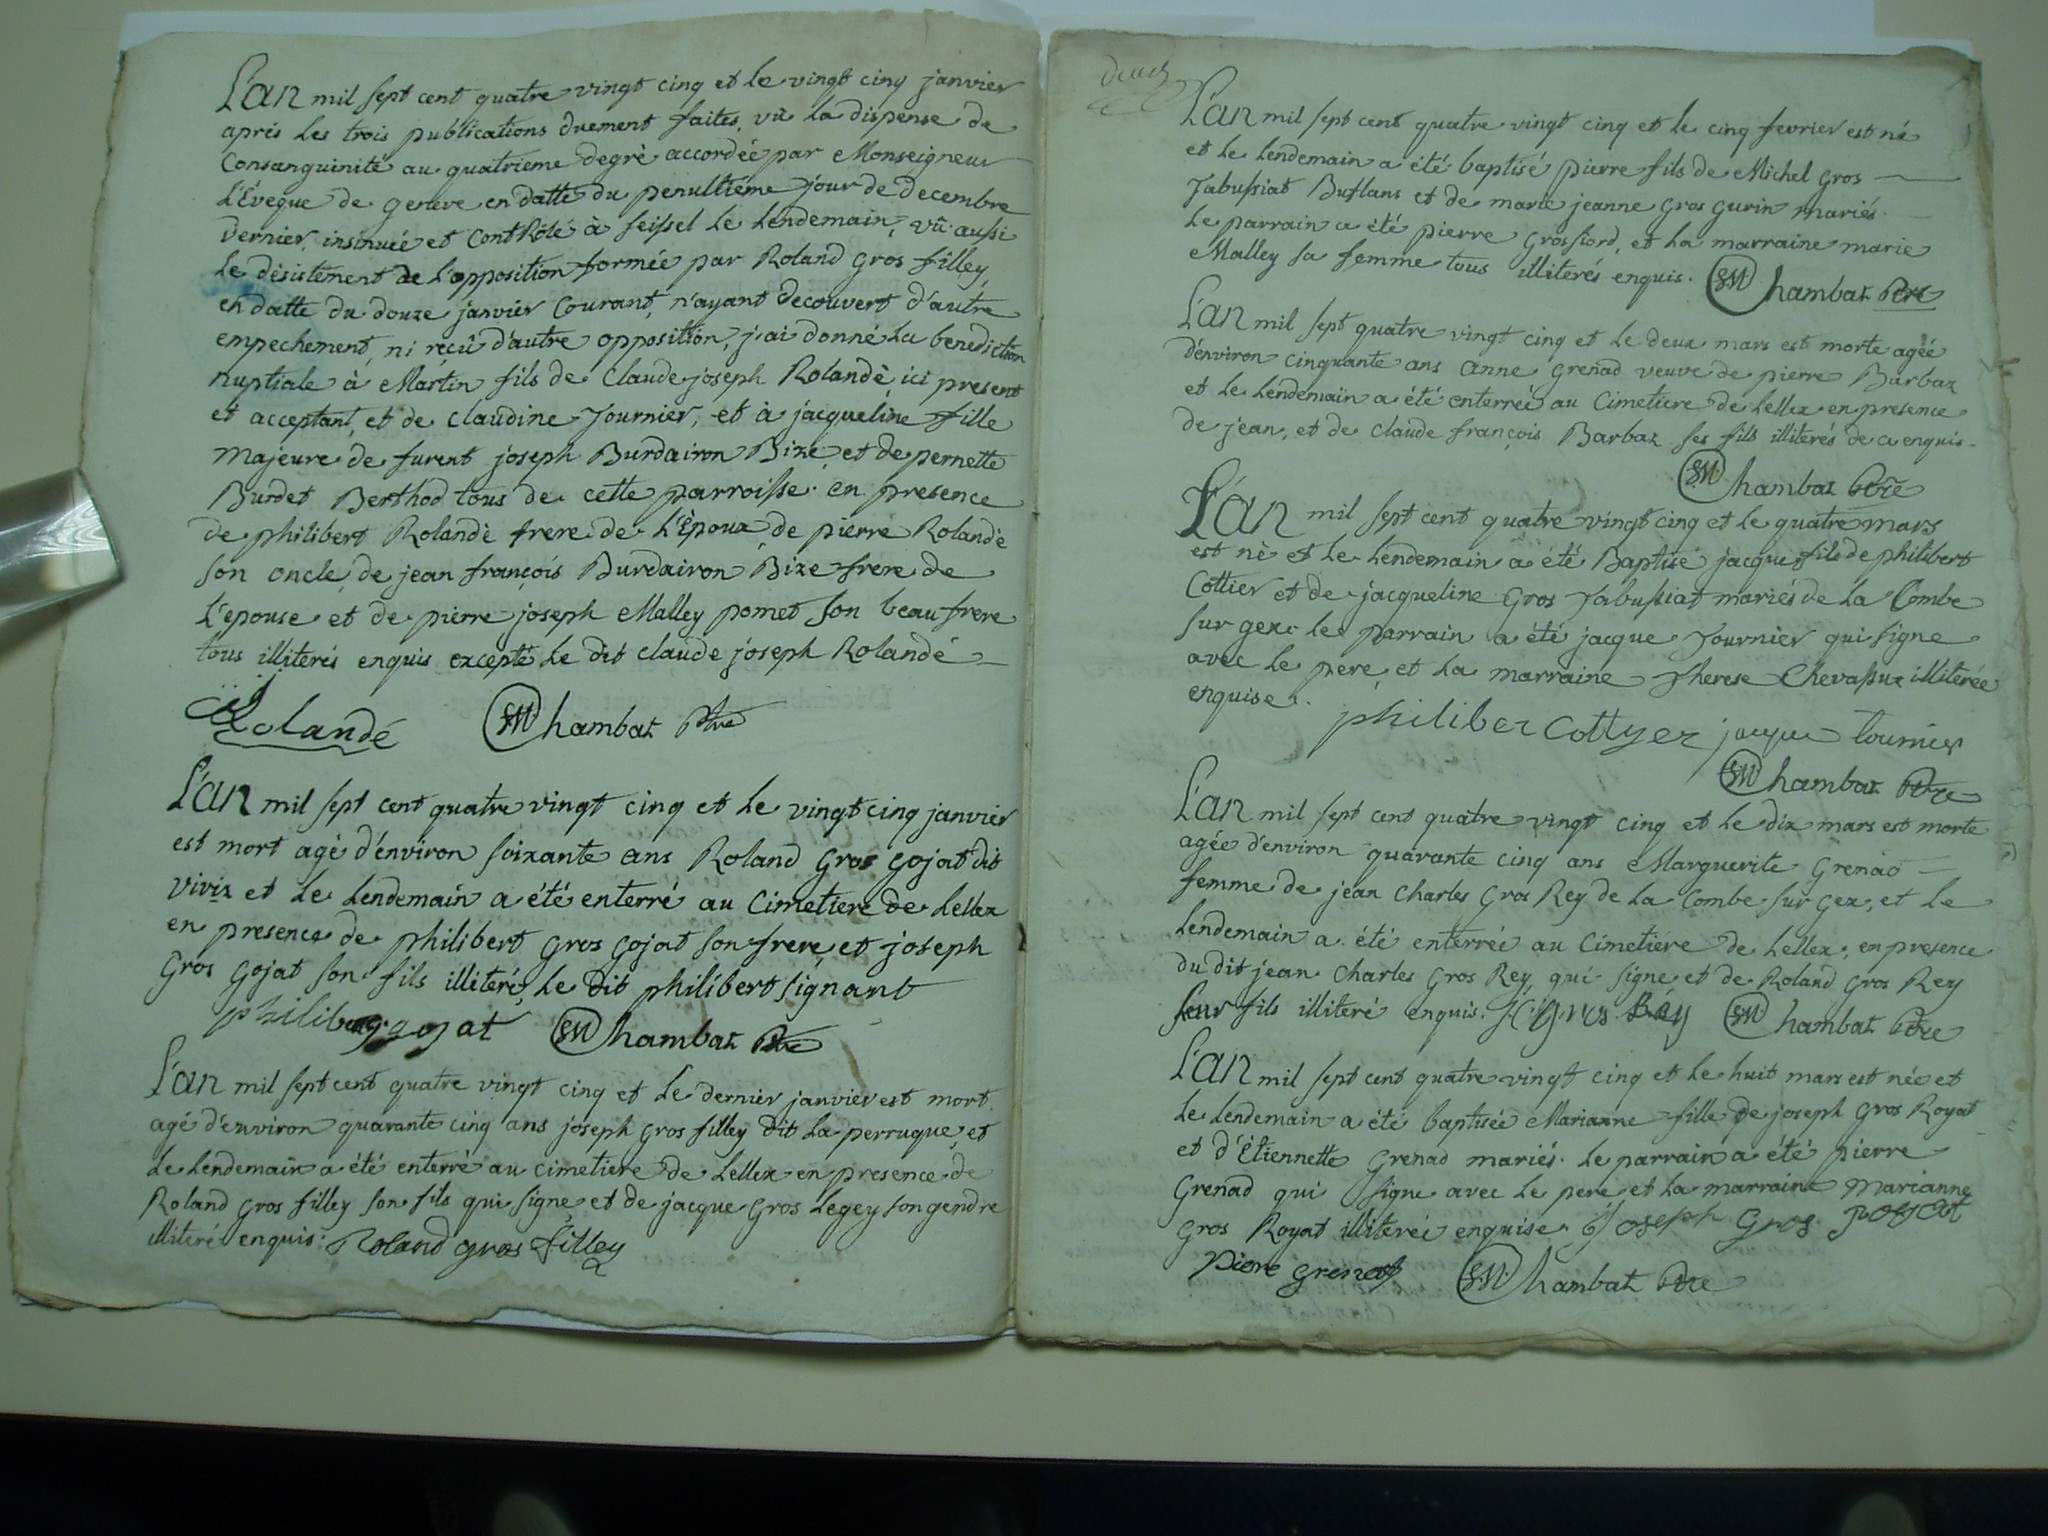 L'an mil sept cent quatre vingt cinq et le vingt cinq janvier
aprés les trois publications duement faites, vû la dispense de
Consanguinité au quatrieme degrè accordée par Monseigneur
L'Évêque de geneve en datte du penultiéme jour de decembre
dernier, insinuée et Contrôlé à seissel le lendemain, vû aussi
le désistement de l'opposition formée par Roland gros filley
en datte du douze janvier Courant, n'ayant decouvert d'autre
empechement, ni reçû d'autre opposition, j'ai donné la benediction
nuptiale à Martin fils de Claude joseph Rolandè ici present
et acceptant, et de claudine Journier, et à jacqueline fille
majeure de furent joseph Burdairon Bize, et de pernette
Burdet Berthod tous de cette parroisse. en presence
de philibert Rolandè frere de l'Èpoux, de pierre Rolandè
son oncle, de jean françois Burdairon Bize frere de
l'epouse et de pierre joseph Malley pomet son beaufrere
tous illiterés enquis exceptè le dit claude joseph Rolandé
Rolandé Chambaz Ptre
L'an mil sept cent quatre vingt cinq et le vingt cinq janvier
est mort agé d'environ soixante ans Roland gros gojat dit
viviz et le lendemain a été enterré au Cimetiere de Lellex
en presence de philibert gros gojat son frere, et joseph
gros gojat son fils illiteré, le dit philibert signant
philiber g gojat Chambaz Ptre
L'an mil sept cent quatre vingt cinq et le dernier janvier est mort
agé d'environ quarante cinq ans joseph gros filley dit la perruque, et
le lendemain a été enterré au cimetiere de Lellex en presence de
Roland gros filley son fils qui signe et de jacque gros legey son gendre
illiteré enquis. Roland gros filley
deux
L'an mil sept cent quatre vingt cinq et le cinq fevrier est né
et le lendemain a été baptisé pierre fils de Michel gros
Jabussiat Buflans et de marie jeanne gros gurin mariés.
le parrain a été pierre grosfiord, et la marraine marie
Malley sa femme tous illiterés enquis. Chambaz Ptre
L'an mil sept quatre vingt cinq et le deux mars est morte agèe
d'environ cinquante ans anne grenad veuve de pierre Barbaz
et le lendemain a été enterrée au Cimetiere de Lellex en presence
de jean, et de claude françois Barbaz ses fils illiterés de ce enquis.
Chambaz Ptre
L'an mil sept cent quatre vingt cinq et le quatre mars
est nè et le lendemain a été Baptisé jacque fils de philibert
Cottier et de jacqueline gros Jabussiat mariés de la Combe
sur gex. le parrain a été jacque Journier qui signe
avec le pere, et la marraine Therese Chevassux illitérée
enquise. philiber Cottyer jacque tournier
Chambaz Ptre
L'an mil sept cent quatre vingt cinq et le dix mars est morte
agée d'environ quarante cinq ans Marguerite grenad
femme de jean charles gros Rey de la Combe sur gex, et le
lendemain a été enterrée au Cimetiére de Lellex, en presence
du dit jean charles gros Rey, qui signe et de Roland gros Rey
leur fils illiteré enquis. j c gros Rey Chambaz Ptre
L'an mil sept cent quatre vingt cinq et le huit mars est née et
le lendemain a été baptisée Marianne fille de joseph gros Royat
et d'Étiennette grenad mariés. le parrain a été pierre
grenad qui signe avec le pere, et la marraine marianne
gros Royat illiteréé enquise. joseph gros royat
piere grenad Chambaz Ptre